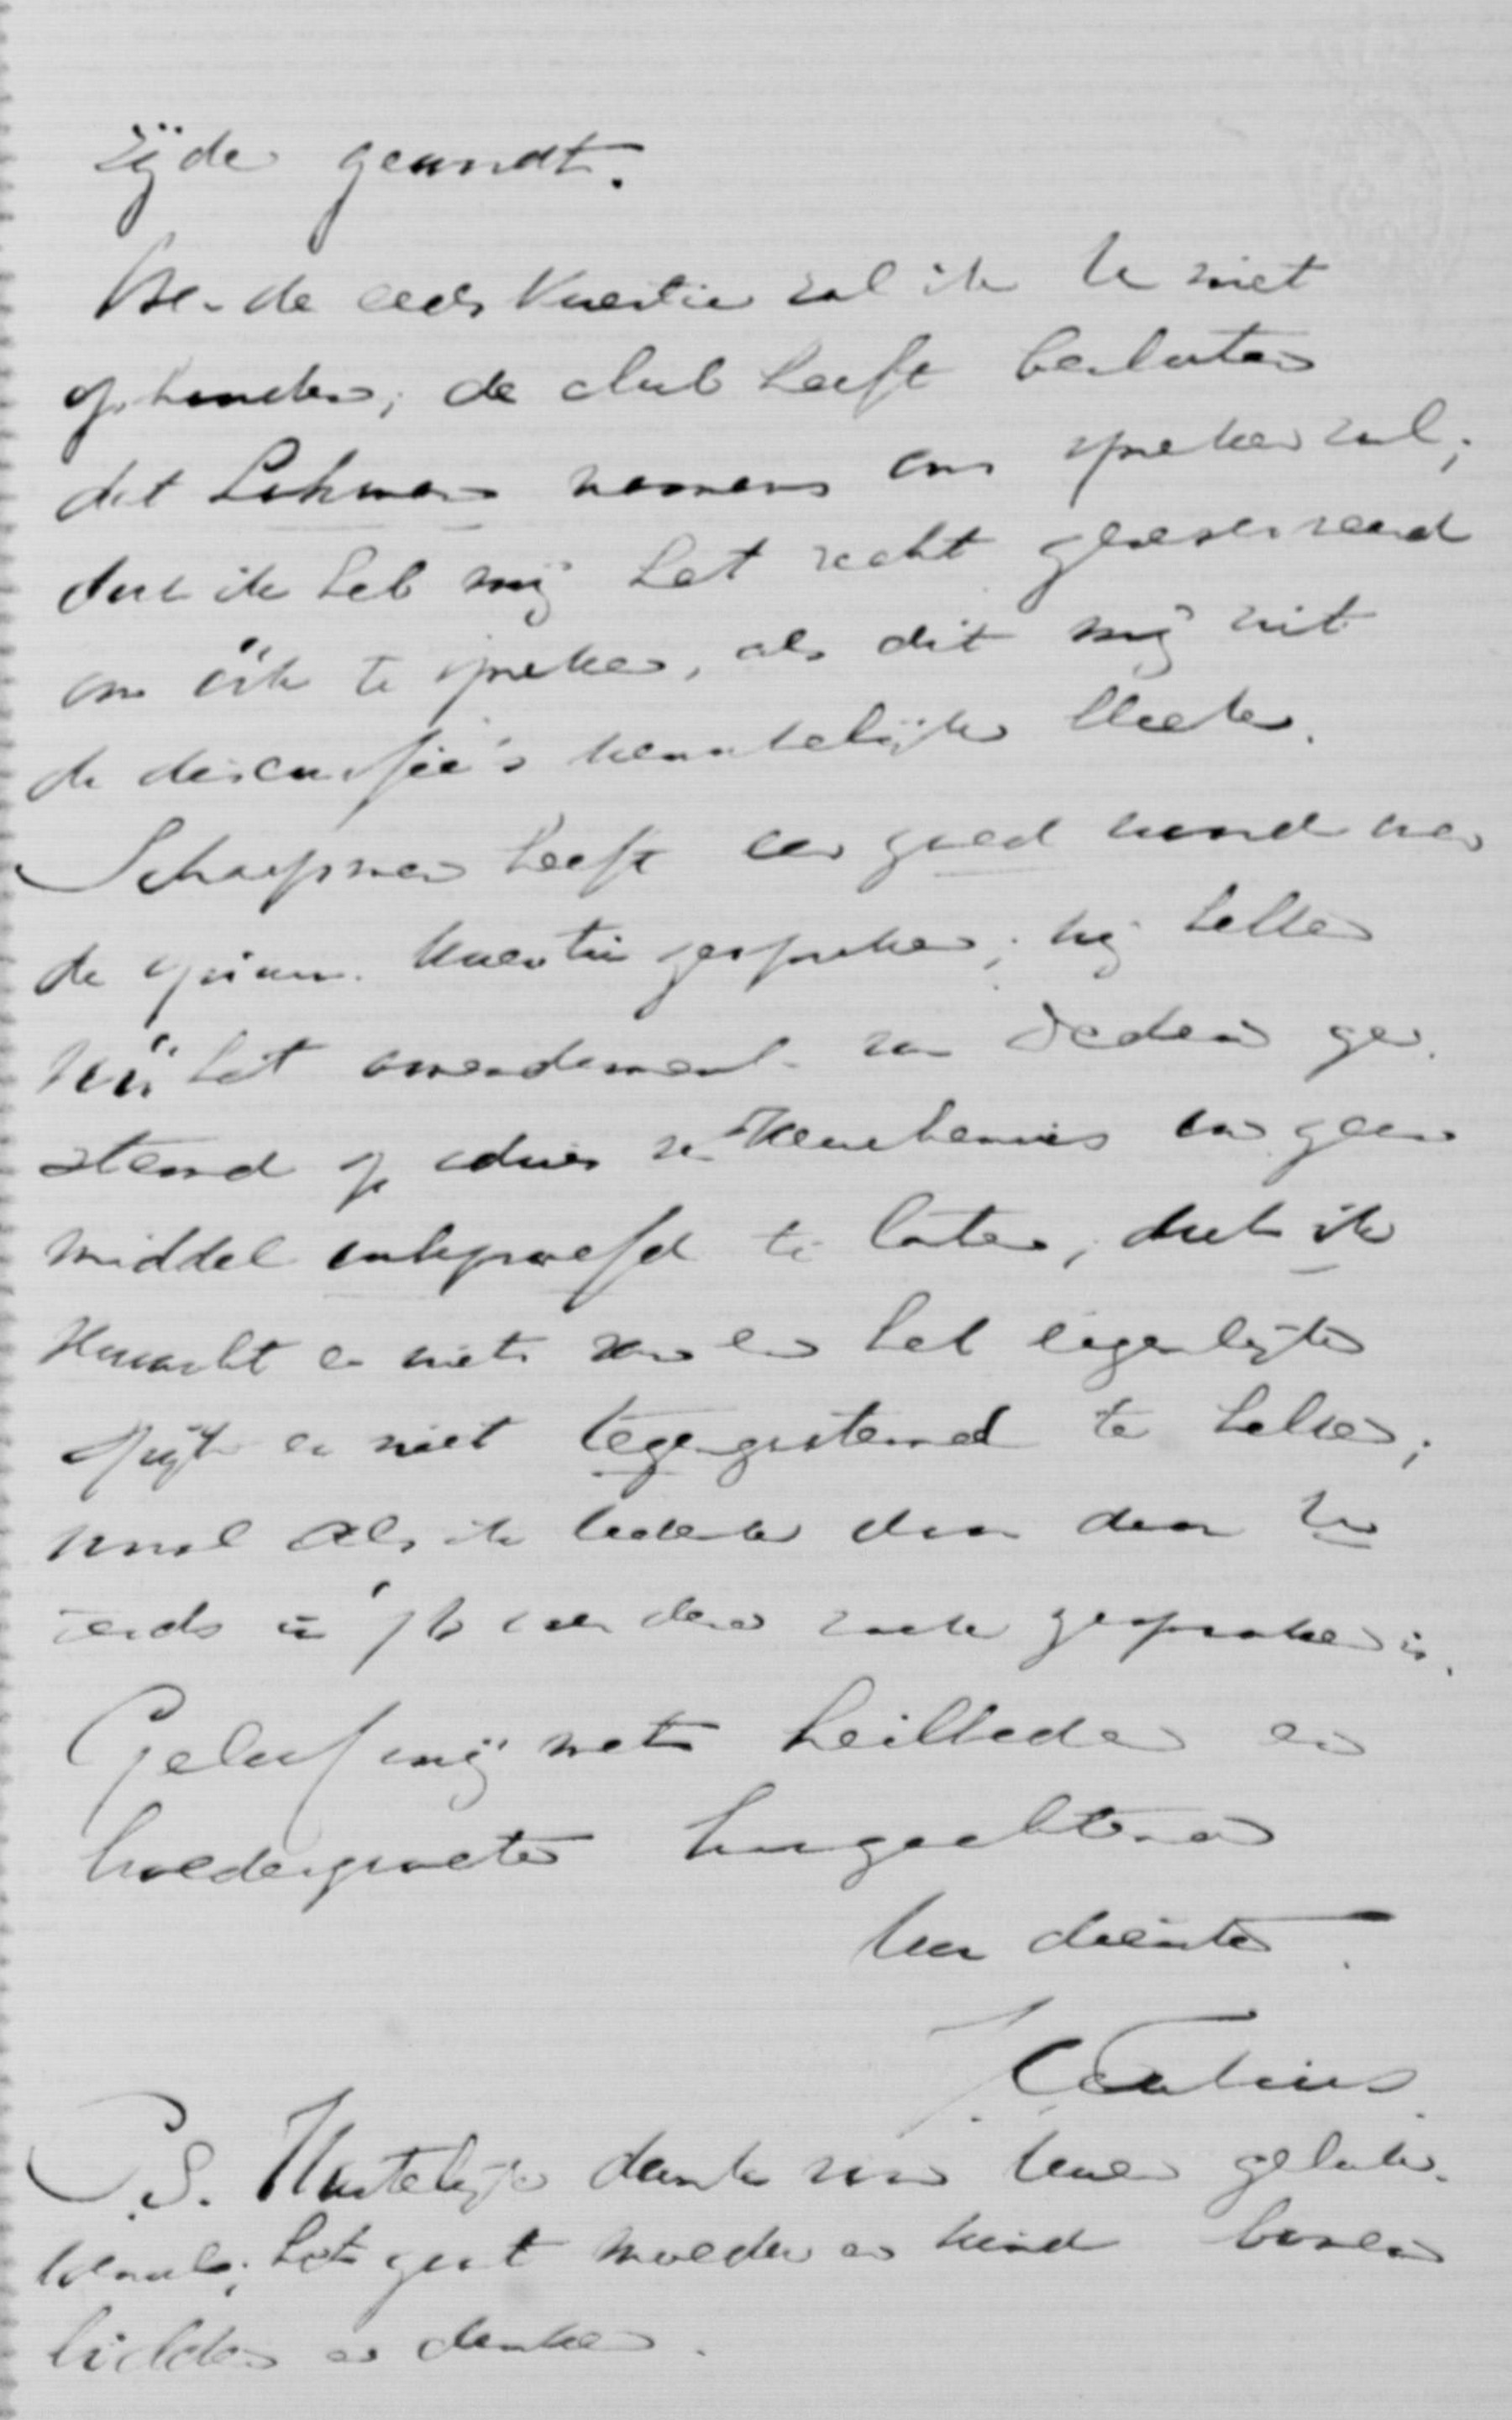 zijde geuudt.
de eeds kwestie zal ik U niet
ophouden; de club heeft besloten
dat Lohman namens ons spreken zal;
doch ik heb mij het recht gereserveerd
om óók te spreken, als dit mij uit
de discussie's wenschelijk bleek.
Schaepman heeft een goed woord over
de opium kwestie gesproken; wij hebben
vóór het amendement van Dedem ge-
stemd op advies van Keuchenius om geen
middel onbeproefd te laten; doch ik
verwacht er niets van en heb eigenlijk
spijt er niet tegengestemd te hebben;
vooral als ik bedenk dan door U
reeds in '76 over deze zaak gesproken is.
Geloof mij met heilbede en
broedergroete hoogachtend
Uw dienstw.
P.S. Hartelijk dank voor Uwen geluk-
wensch; het gaat moeder en kind boven
bidden en denken.